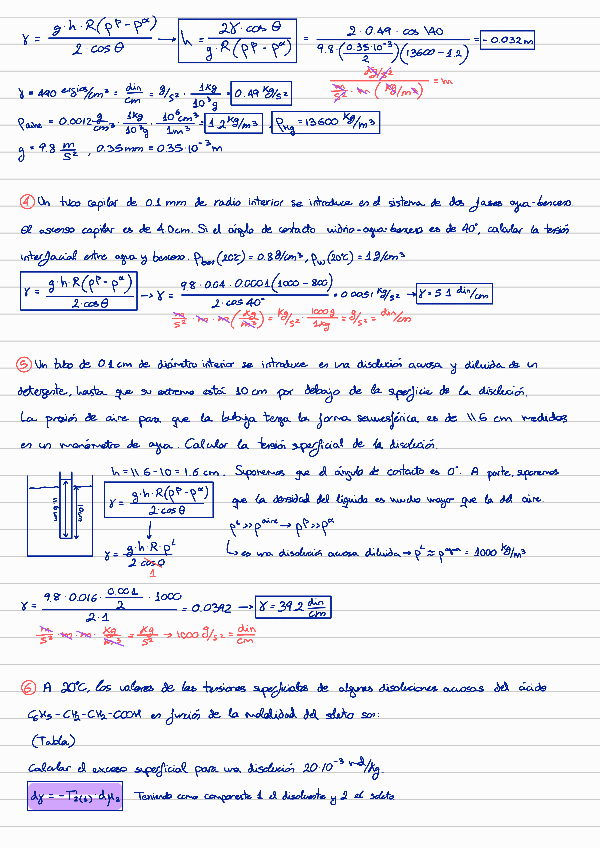 γ = g·h·R(ρᵝ-ρᵅ) / 2 cosθ → h = 2γ·cosθ / g·R(ρᵝ-ρᵅ) = 2·0.49·cos 140 / 9.8·(0.35·10⁻³/2)(13600-1.2) = -0.032m
kg/s² / m/s² · m · (kg/m³) = m
γ = 490 ergios/cm² = din/cm = g/s² · 1kg/10³g = 0.49 kg/s²
ρaire = 0.0012 g/cm³ · 1kg/10³g · 10⁶cm³/1m³ = 1.2 kg/m³, ρHg = 13600 kg/m³
g = 9.8 m/s², 0.35mm = 0.35·10⁻³m
④ Un tubo capilar de 0.1 mm de radio interior se introduce en el sistema de dos fases agua-benceno
El ascenso capilar es de 4.0cm. Si el ángulo de contacto vidrio-agua-benceno es de 40°, calcular la tensión
interfacial entre agua y benceno. ρben(20°C) = 0.8g/cm³, ρw(20°C) = 1g/cm³
γ = g·h·R(ρᵝ-ρᵅ) / 2·cosθ → γ = 9.8·0.04·0.0001(1000-800) / 2·cos40° = 0.0051 kg/s² → γ = 5.1 din/cm
m/s² · m · m (kg/m³) = kg/s² · 1000g/1kg = g/s² = din/cm
⑤ Un tubo de 0.1cm de diámetro interior se introduce en una disolución acuosa y diluida de un
detergente, hasta que su extremo está 10cm por debajo de la superficie de la disolución.
La presión de aire para que la burbuja tenga la forma semiesférica es de 11.6 cm medidos
en un manómetro de agua. Calcular la tensión superficial de la disolución.
h = 11.6-10 = 1.6 cm. Suponemos que el ángulo de contacto es 0°. A parte, suponemos
γ = g·h·R(ρᵝ-ρᵅ) / 2·cosθ que la densidad del líquido es mucho mayor que la del aire.
ρᴸ >> ρᵃⁱʳᵉ → ρᵝ >> ρᵅ
γ = g·h·R·ρᴸ / 2 cosθ es una disolución acuosa diluida → ρᴸ ≈ ρᵃᵍᵘᵃ = 1000 kg/m³
1
γ = 9.8·0.016·0.001/2·1000 / 2·1 = 0.0392 → γ = 39.2 din/cm
m/s² · m · m · kg/m³ = kg/s² → 1000 g/s² = din/cm
⑥ A 20°C, los valores de las tensiones superficiales de algunas disoluciones acuosas del ácido
C₆H₅-CH₂-CH₂-COOH en función de la molalidad del soluto son:
(Tabla)
Calcular el exceso superficial para una disolución 20·10⁻³ mol/kg.
dγ = -Γ₂₍₁₎·dμ₂ Teniendo como componente 1 el disolvente y 2 el soluto